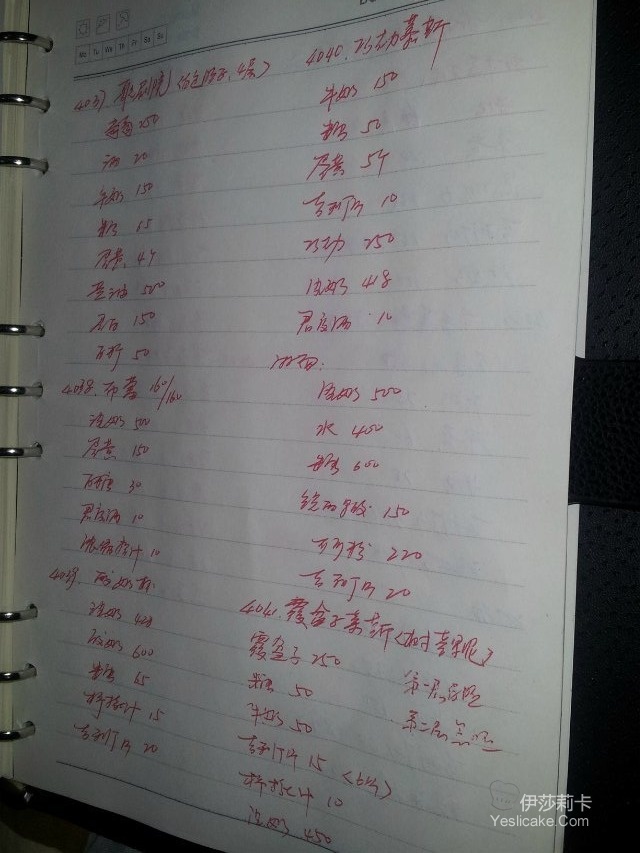 Mo Tu We Th Fr Sa Su
4037.
250
酒 20
牛奶 150
糖 15
蛋黄 44
黄油 500
150
50
4038. 布蕾 160/160
淡奶 500
蛋黄 150
砂糖 30
君度酒 10
浓缩橙汁 10
4039. 酸奶
淡奶 420
酸奶 600
糖 65
柠檬汁 15
吉利丁片 20
4040. 巧克力慕斯
牛奶 150
糖 50
蛋黄 54
吉利丁片 10
巧克力 250
淡奶 418
君度酒 10
淋面:
淡奶 500
水 400
糖 600
镜面果胶 150
可可粉 220
吉利丁片 20
4041. 覆盆子慕斯
覆盆子 250
糖 50
牛奶 50
吉利丁片 15 (6片)
柠檬汁 10
淡奶 450
第一层
第二层
伊莎莉卡
Yeslicake.Com